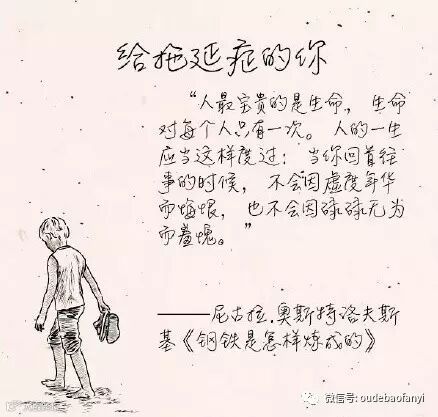 给拖延症的你
“人最宝贵的是生命，生命
对每个人只有一次。人的一生
应当这样度过：当你回首往
事的时候，不会因虚度年华
而悔恨，也不会因碌碌无为
而羞愧。”
——尼古拉.奥斯特洛夫斯
基《钢铁是怎样炼成的》
微信号: oudebaofanyi